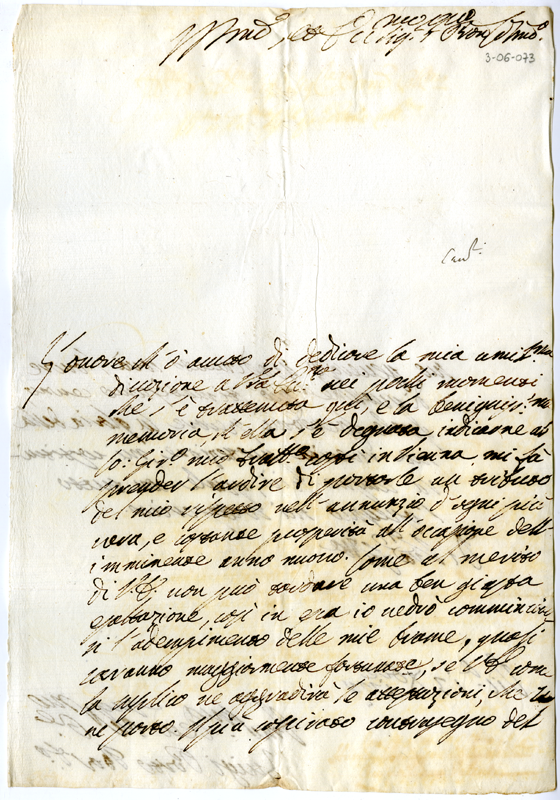 Ill.mo, et Ecc.mo Sig.r Pron. Col.mo
3-06-073
L'onore ch'ò avuto di dedicare la mia umil.ma
divozione a V.ra Ecc.za nei pochi momenti
che s'è trattenuta quì, e la benigniss.ma
memoria, ch'ella s'è degnata indicarne al
mio così in Vienna mi fà
prender l'ardire di portarle un tributo
del mio rispetto nell'annunzio d'ogni più
vera, e costante prosperità all'occasione dell'
imminente anno nuovo. Come al merito
di V.E. non può tardare una ben giusta
esaltazione, così in essa io vedrò cominciar
si l'adempimento delle mie brame, quali
saranno maggiormente fortunate, se V.E. come
la supplico ne aggradirà le attestazioni, che le
ne porto. Il più contrasegno del